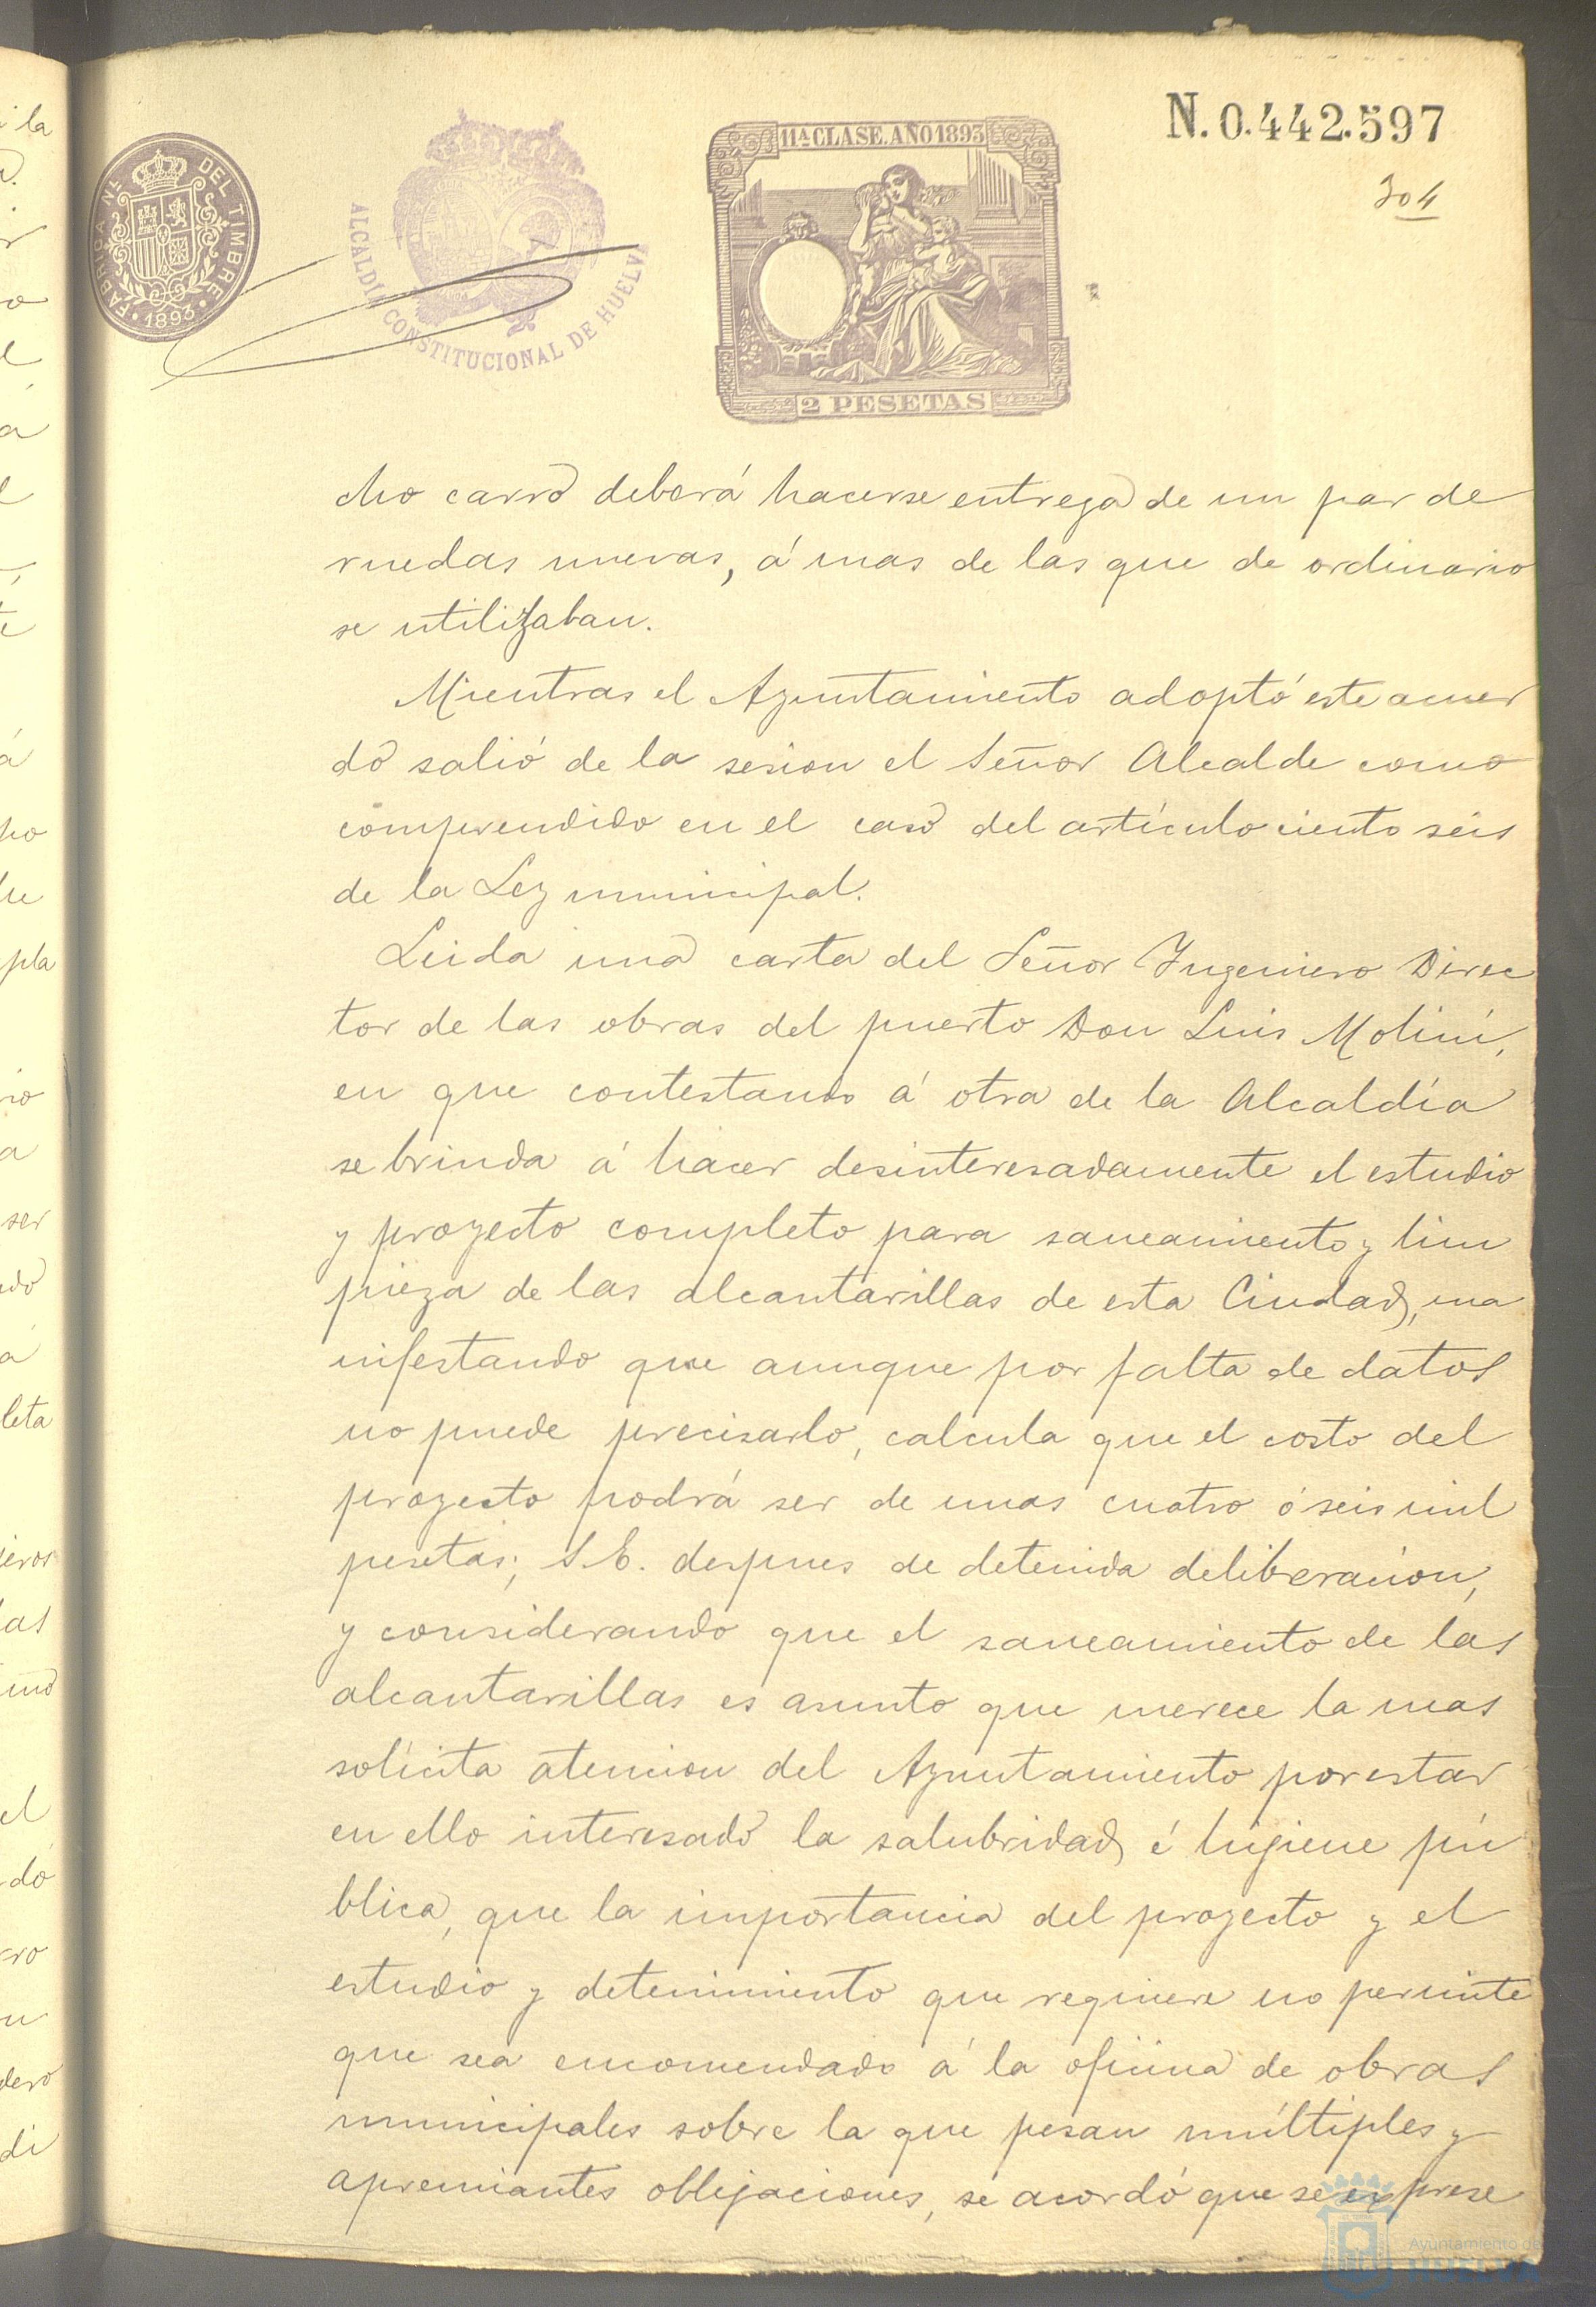 N. 0.442.597
304
FABRICA NL. DEL TIMBRE
1893
ALCALDIA CONSTITUCIONAL DE HUELVA
11ª CLASE. AÑO 1893
2 PESETAS
cho carro deberá hacerse entrega de un par de
ruedas nuevas, á mas de las que de ordinario
se utilizaban.
Mientras el Ayuntamiento adoptó este acuer
do salió de la sesion el Señor Alcalde como
comprendido en el caso del artículo ciento seis
de la Ley municipal.
Leida una carta del Señor Ingeniero Direc
tor de las obras del puerto Don Luis Molini,
en que contestando á otra de la Alcaldía
se brinda á hacer desinteresadamente el estudio
y proyecto completo para saneamiento y lim
pieza de las alcantarillas de esta Ciudad, ma
nifestando que aunque por falta de datos
no puede precisarlo, calcula que el costo del
proyecto podrá ser de unas cuatro ó seis mil
pesetas; S.E. despues de detenida deliberacion,
y considerando que el saneamiento de las
alcantarillas es asunto que merece la mas
solícita atencion del Ayuntamiento por estar
en ello interesado la salubridad é higiene pú
blica, que la importancia del proyecto y el
estudio y detenimiento que requiere no permite
que sea encomendado á la oficina de obras
municipales sobre la que pesan múltiples y
apremiantes obligaciones, se acordó que se exprese
Ayuntamiento de
HUELVA